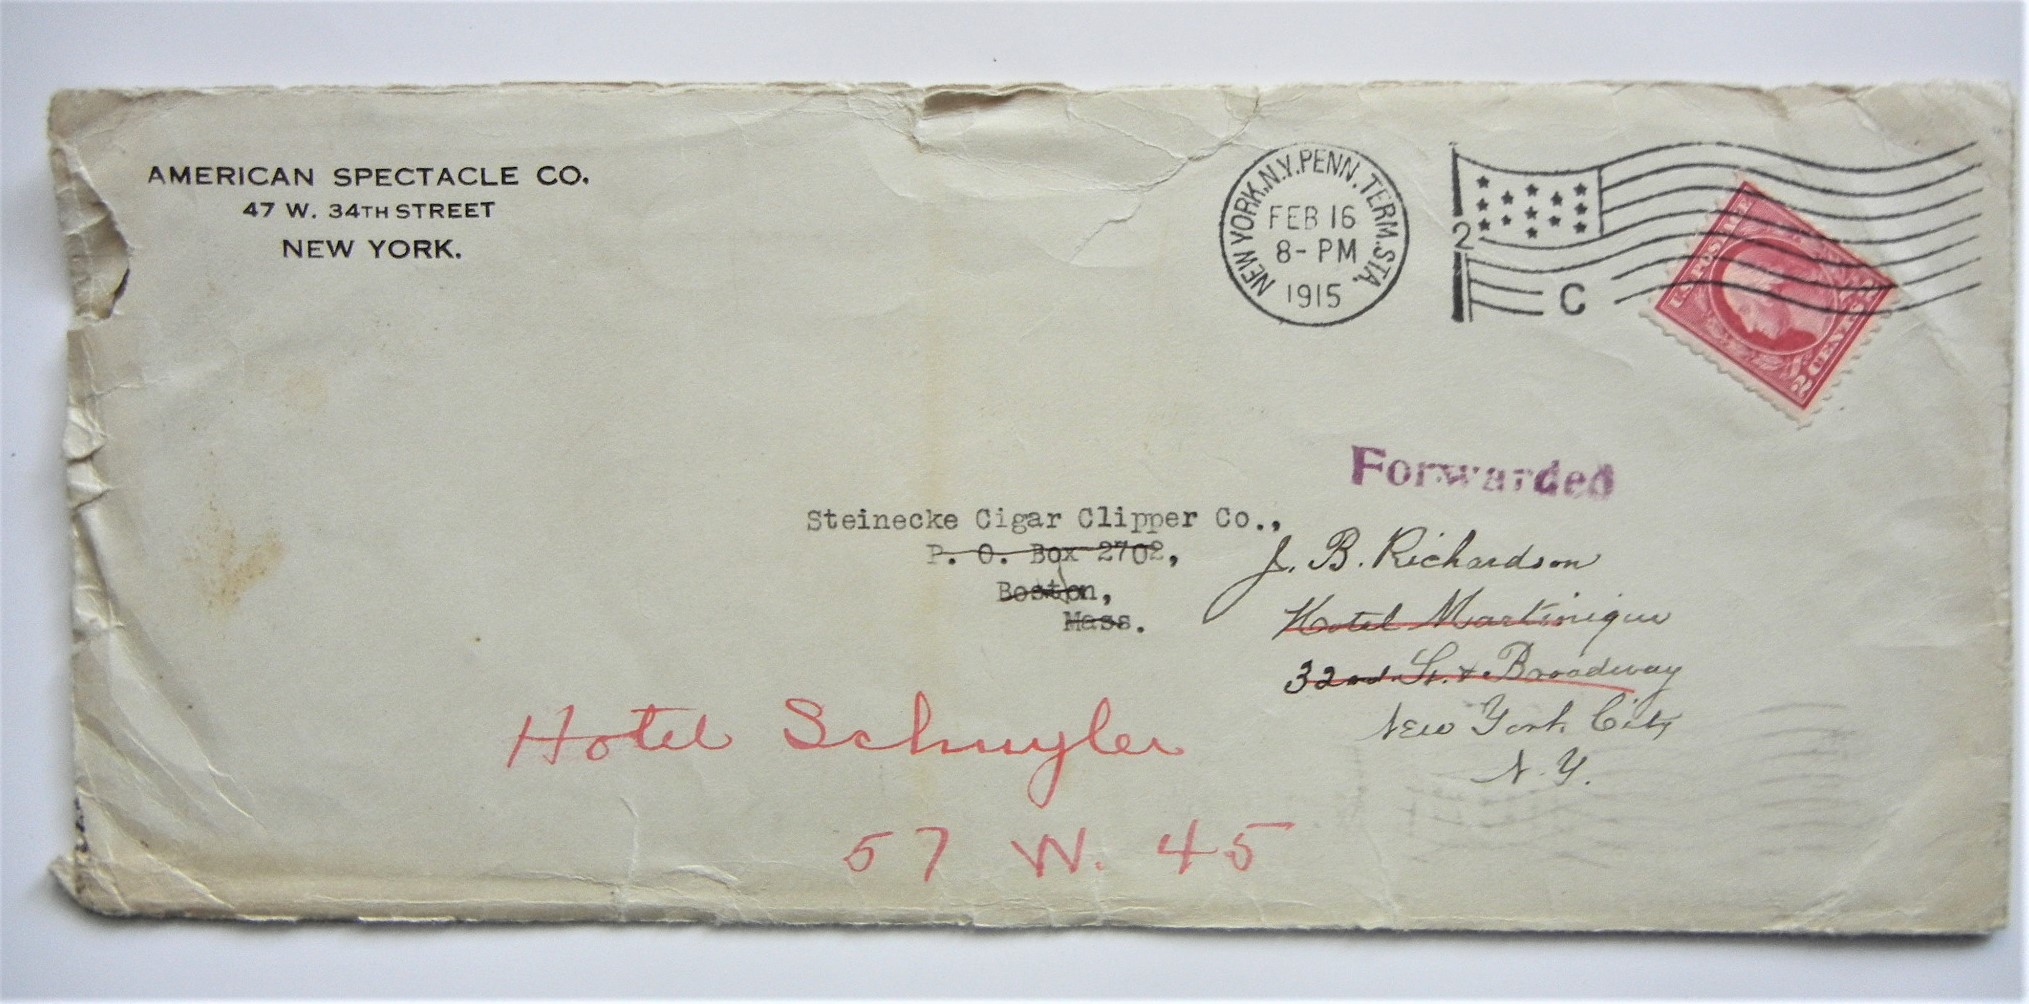 AMERICAN SPECTACLE CO.
47 W. 34TH STREET
NEW YORK.
NEW YORK, N.Y. PENN. TERM. STA.
FEB 16
8 - PM
1915
2
C
U.S. POSTAGE
2 CENTS 2
Forwarded
Steinecke Cigar Clipper Co.,
P. O. Box 2702,
Boston,
Mass.
J. B. Richardson
Hotel Martinique
32nd St. & Broadway
New York City
N. Y.
Hotel Schuyler
57 W. 45